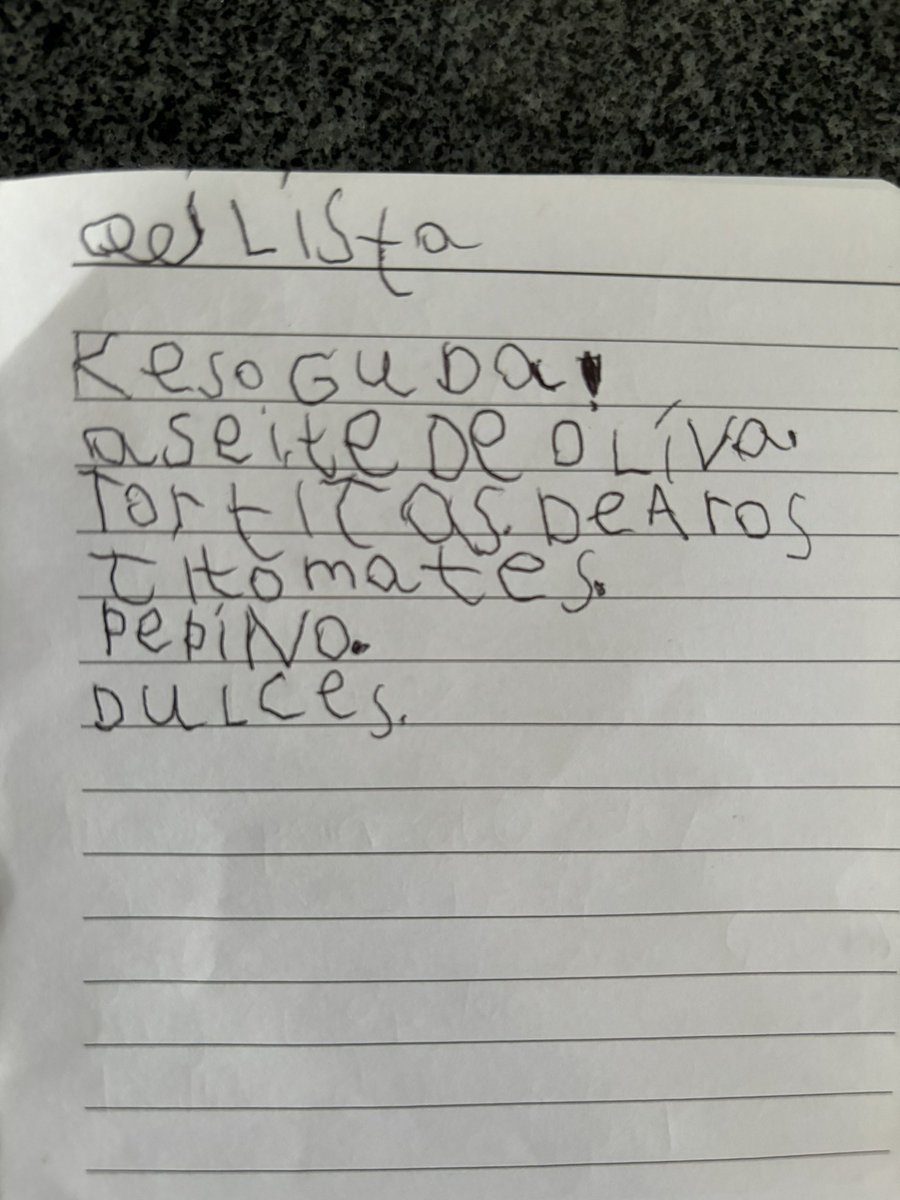 Lista
Keso GuDa!
aseite De oliva.
Tortitas. De Aros
tomates.
PePiNo.
DULCes.